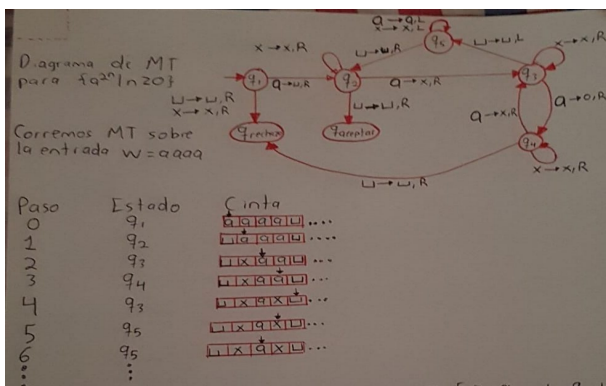 Diagrama de MT
para {a^2^n | n≥0}
Corremos MT sobre
la entrada w = aaaa
a→a,L
x→x,L
q5
x→x,R
⊔→⊔,R
⊔→⊔,L
x→x,R
q1
a→⊔,R
q2
a→x,R
q3
⊔→⊔,R
x→x,R
⊔→⊔,R
a→x,R
a→a,R
qrechazo
qaceptar
q4
x→x,R
⊔→⊔,R
Paso Estado Cinta
0 q1 a a a a ⊔ ....
1 q2 ⊔ a a a ⊔ ....
2 q3 ⊔ x a a ⊔ ...
3 q4 ⊔ x a a ⊔ ...
4 q3 ⊔ x a x ⊔ ...
5 q5 ⊔ x a x ⊔ ...
6 q5 ⊔ x a x ⊔ ...